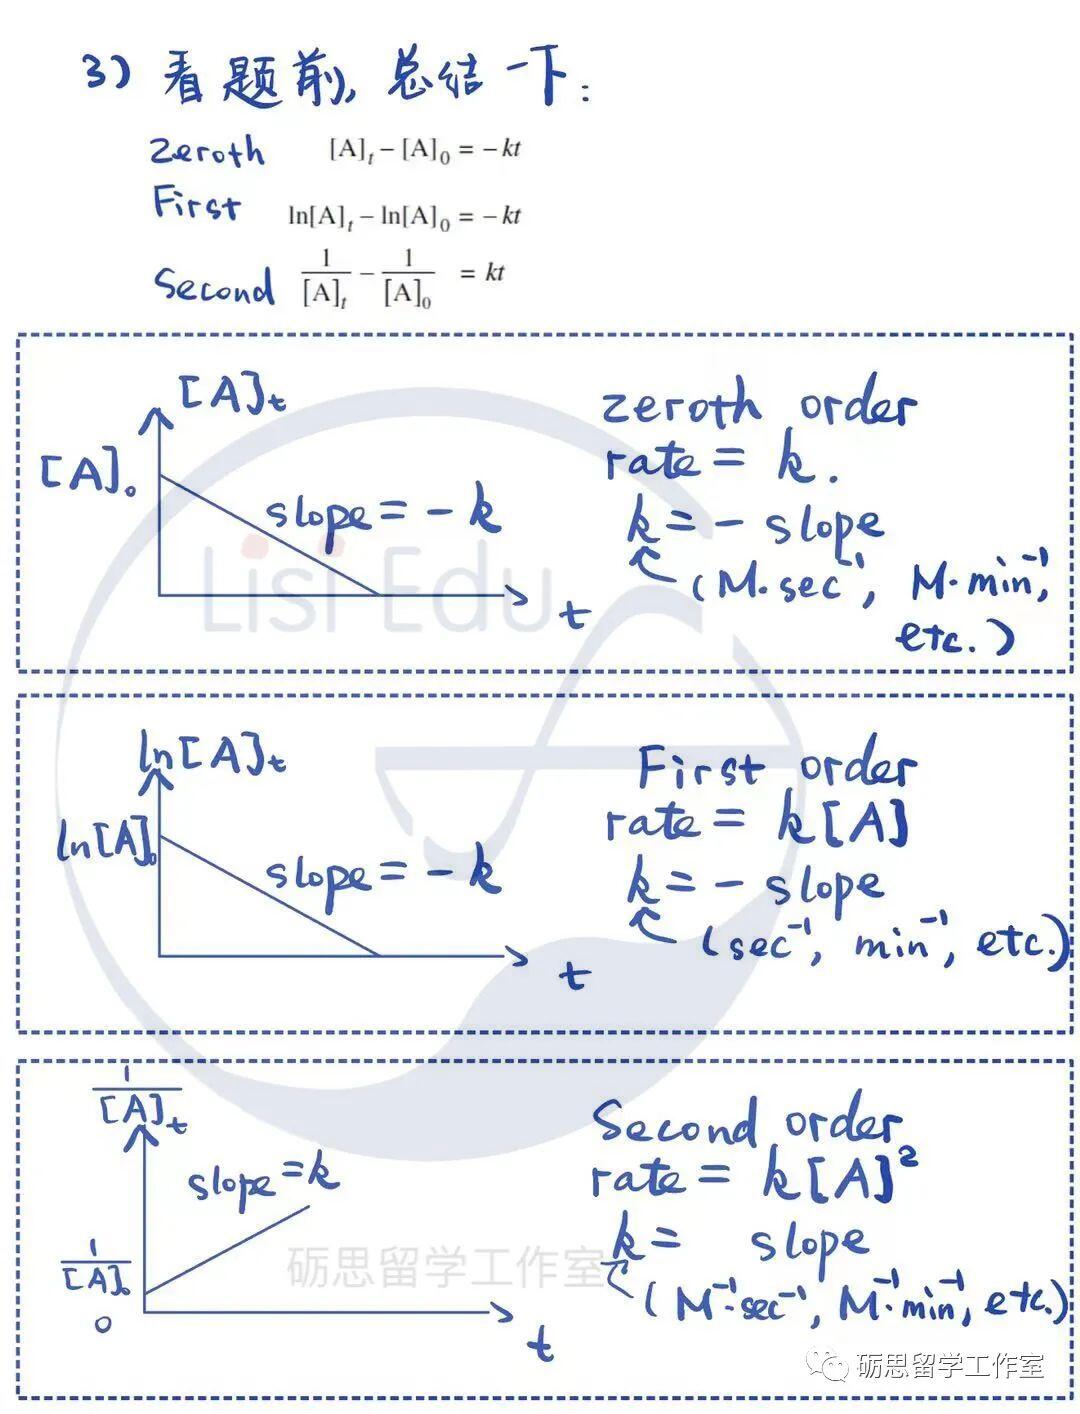 3) 看题前, 总结一下:
Zeroth [A]t – [A]0 = – kt
First ln[A]t – ln[A]0 = – kt
Second 1/[A]t – 1/[A]0 = kt
[A]t
[A]0
slope = - k
t
zeroth order
rate = k.
k = - slope
(M·sec⁻¹, M·min⁻¹,
etc.)
Lisi Edu
ln[A]t
ln[A]0
slope = - k
t
First order
rate = k[A]
k = - slope
(sec⁻¹, min⁻¹, etc.)
1/[A]t
slope = k
1/[A]0
0
t
Second order
rate = k[A]²
k = slope
(M⁻¹·sec⁻¹, M⁻¹·min⁻¹, etc.)
砺思留学工作室
砺思留学工作室